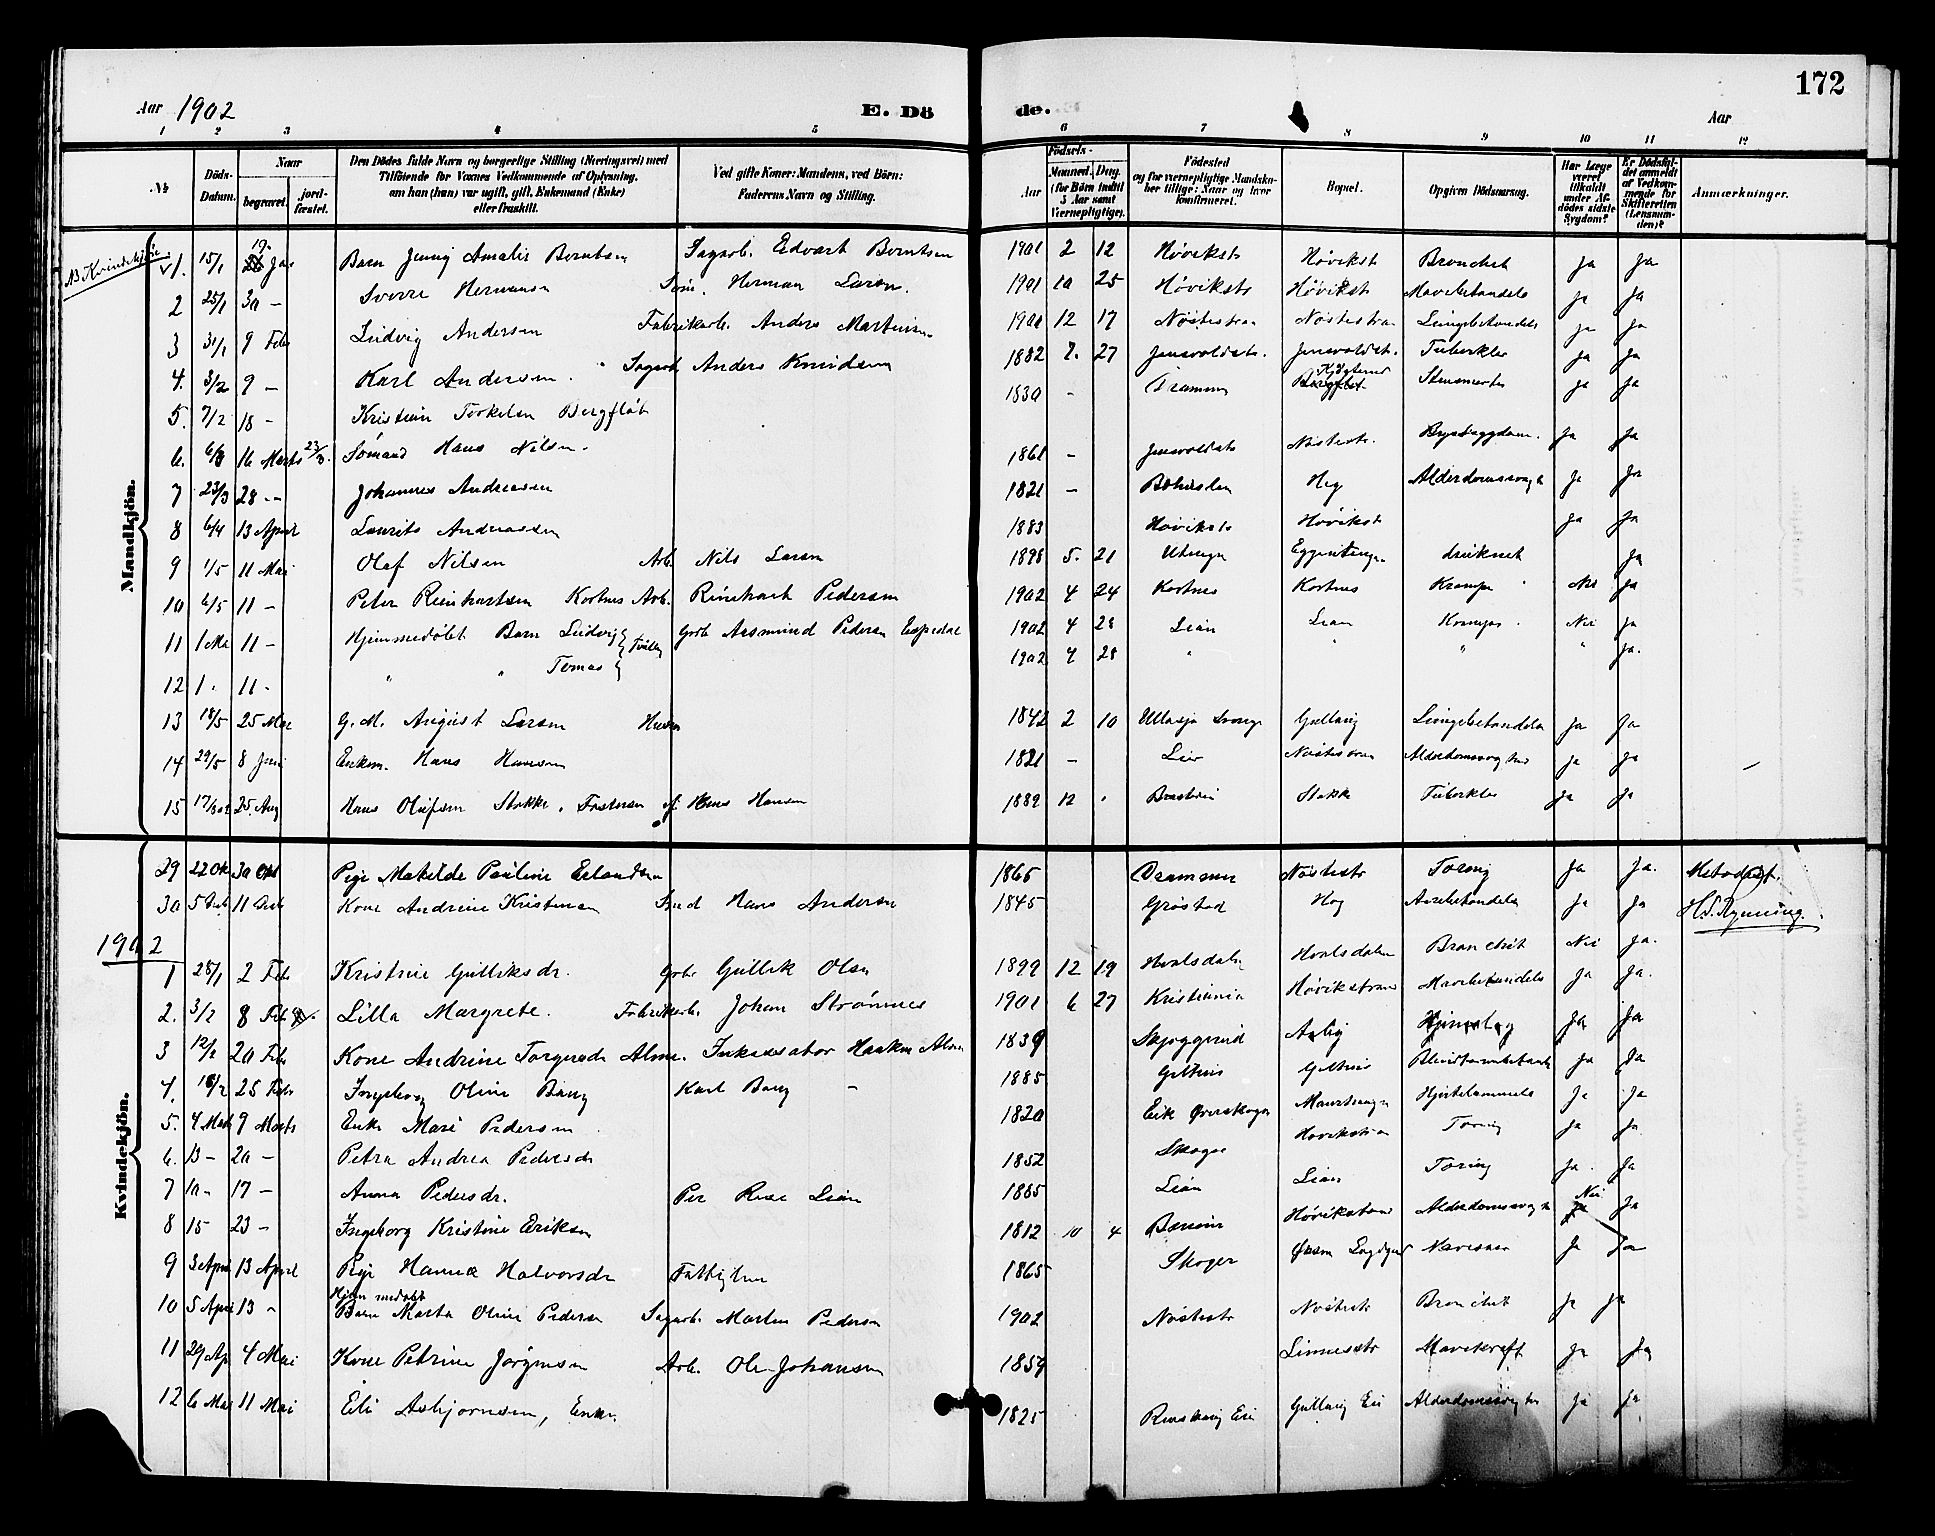 172
Aar 1902 E. Dö de. Aar
1 2 3 4 5 6 7 8 9 10 11 12
№ Döds-Datum. Naar begravet. jordfæstet. Den Dödes fulde Navn og borgerlige Stilling (Næringsvei) med Tilföiende for Voxnes Vedkommende af Oplysning, om han (hun) var ugift, gift, Enkemand (Enke) eller fraskilt. Ved gifte Koner: Mandens, ved Börn: Faderens Navn og Stilling. Födsels- Aar Maaned. Dag. (for Börn indtil 5 Aar samt Værnepligtige). Födested og for værnepligtige Mandskaber tillige: Naar og hvor konfirmeret. Bopæl. Opgiven Dödsaarsag. Har Læge været tilkaldt under Afdödes sidste Sygdom? Er Dödsfaldet anmeldt af Vedkommende for Skifteretten (Lensmanden)? Anmærkninger.
Mandkjön.
NB Kvindekjön
1. 15/1 19 Jan Barn Jenny Amalie Berntsen Sagarb. Edvart Berntsen 1901 2 12 Høvikstr Høvikst Bronchit Ja Ja
2 25/1 30 - Sverre Hermansen Herman Larsen. 1901 10 25 Høvikstr Høvikst Mavebetændels Ja Ja
3 31/1 9 Febr Ludvig Andersen Fabrikarb. Anders Martinsen 1901 12 17 Nøstestra Nøstestra Lungebetændels Ja Ja
4. 3/2 9 - Karl Andersen. Sagarb Anders Knudsen 1882 7. 27 Jensvoldstr. Jensvoldst. Tuberkler Ja Ja
5. 7/2 18 - Kristian Torkelsen Bergfløt 1830 - Drammen Ja Ja
6. 16 Marts 23/3. Sömand Hans Nilsen. 1861 - Jensvoldstr Nøstestr. Brystsygdom. Ja Ja
7 23/3 28 - Johannes Andreassen 1821 - Bohuslen Heg Ja Ja
8 6/4 13 April Laurits Andreassen 1883 Høvikstr Høvikst Ja Ja
9 1/5 11 Mai Olaf Nilsen Arb. Nils Larsen 1898 5. 21 druknet Ja
10 6/5 11 - Peter Reinhartsen Kortnes Arb. Reinhart Pedersen 1902 4 24 Kortnes Kortnes Krampe Nei Ja
11 1 Mai 11 - Hjemmedøbt Barn Ludvig Tvilling Grb Aasmund Pedersen Espedal 1902 4 28 Lian Lian Krampe. Nei Ja
12 1 - 11 - " " Tomas 1902 4 28 " " " " Ja.
13 18/5 25 Mai G.M. August Larsen 1842 2 10 Gullaug Lungebetændelse Ja Ja
14 29/5 8 Juni Enkem. Hans Hansen 1821 - Lier Nøstestran Ja Ja
15 25. Aug Hans Olufsen Stokke, Fostersøn af Hans Hansen 1889 12 Stokke Tuberkler Ja Ja
Kvindekjön.
29 22 Okt 30 Okt Pige Matilde Pauline Erlandsen 1865 Drammen Nøstestr Tæring Ja Ja. Metodist.
30 5 11 Kone Andrine Kristensen Hans Andersen 1845 Grøstad Heg Ja Ja H.S. Rynning.
1902
1 28/1 2 Febr Kristine Gulliksdr. Grbr Gullik Olsen 1899 12 19 Hvalsdalen Hvalsdalen Bronchit Nei Ja.
2. 3/2 8 Feb Lilla Margrete. Fabrikarb. Johan Strømnes 1901 6 27 Kristiania Høvikstrand Mavebetændels Ja Ja.
3 12/2 20 Febr Kone Andrine Torgersdr Alme. Haakon Alme 1839 Skjeggerud Asbig Ja Ja
4. 18/2 25 Febr Ingeborg Oline Bang Karl Bang - 1885 Gilhus Gilhus Blindtarmbetænd Ja Ja
5. 4 Marts 9 Marts Enke Mari Pedersen 1820 Eik Øvreskogen Hjertelammels Ja Ja
6. 13 - 20 - Petra Andrea Pedersdr 1852 Skoger Høvikstran Tæring Ja Ja
7 10 - 17 - Anna Pedersdr. Per Lian 1885 Lian Lian Tæring Ja. Ja
8 15 23 - Ingeborg Kristine Eriksen 1812 10 4 Høvikstrand Nei Ja
9 3 April 13 April Pige Hanna Halvorsdr Fattiglem 1865 Skoger Ja Ja
10 5 April 13 - Hjem medøbt Barn Marta Oline Pedersen Sagarb. Martin Pedersen 1902 Nøstestr Nøstestr Bronchit Ja Ja
11 29 Ap 4 Mai Kone Petrine Jørgensen Arb. Ole Johansen 1859 Linnesstr Mavekræft Ja Ja
12 6 Mai 11 Mai Eli Asbjørnsen, Enke 1825 Gullaug Eie Ja Ja